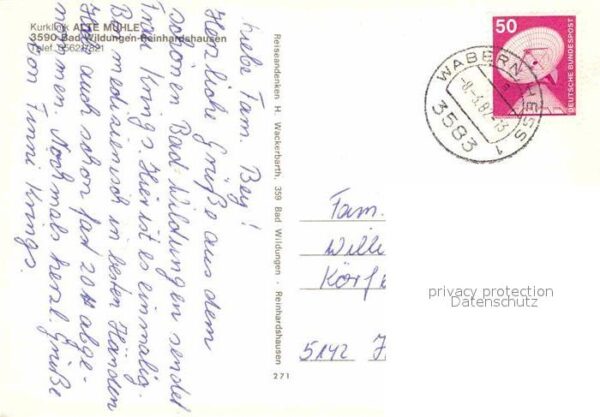 Kurklinik ALTE MÜHLE
3590 Bad Wildungen-Reinhardshausen
Telef. 05621/821
Liebe Fam. Bey!
Herzliche Grüße aus dem
schönen Bad Wildungen sendet
Frau Krings. Hier ist es einmalig.
Bin medizienisch in besten Händen
Hab auch schon fast 20 H abge-
nommen. Nochmals herzl. Grüße
von Finni Krings.
Reiseandenken H. Wackerbarth, 359 Bad Wildungen - Reinhardshausen
271
50
DEUTSCHE BUNDESPOST
WABERN, HESS
3583
1
Fam.
Wille
Körf
5142
privacy protection
Datenschutz